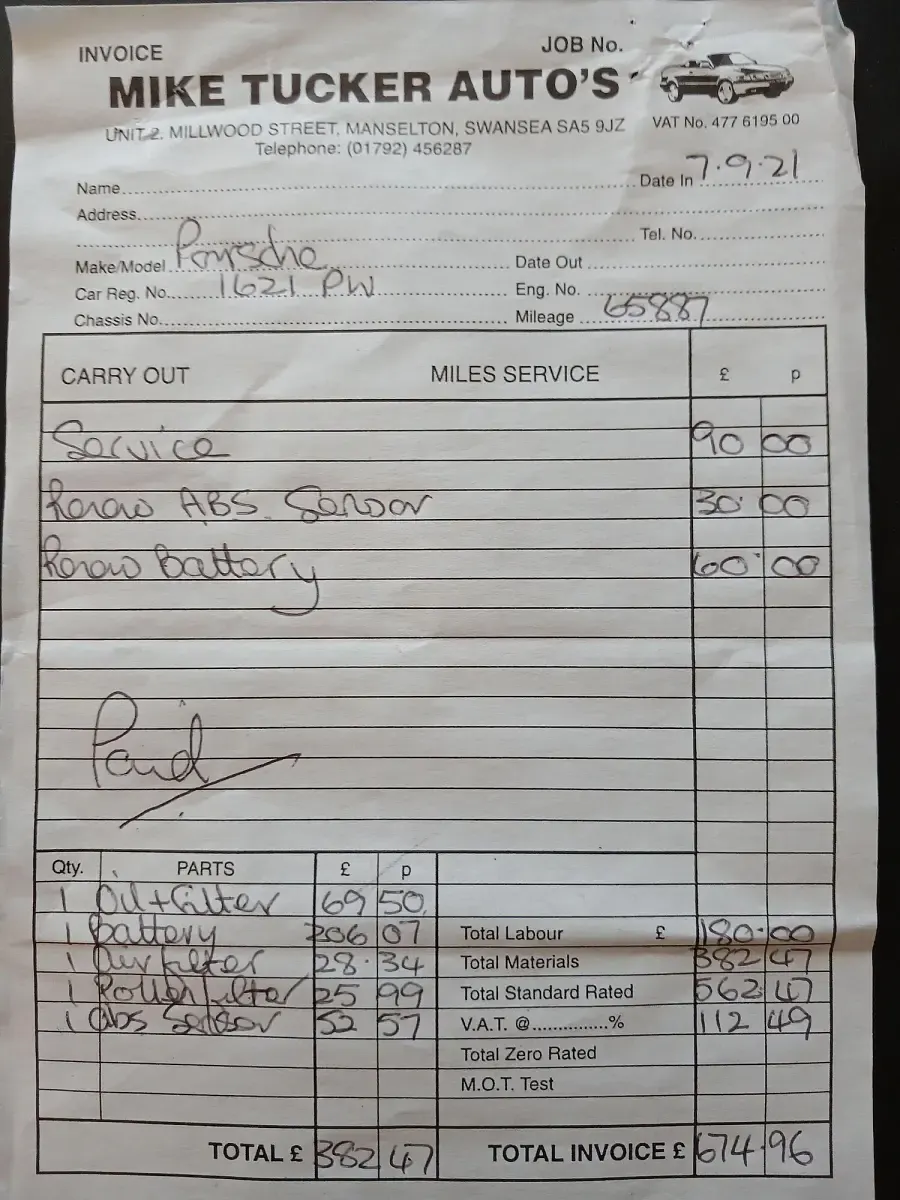 INVOICE
JOB No.
MIKE TUCKER AUTO'S
UNIT 2. MILLWOOD STREET, MANSELTON, SWANSEA SA5 9JZ
VAT No. 477 6195 00
Telephone: (01792) 456287
Name
Date In 7.9.21
Address
Tel. No.
Make/Model Porsche
Date Out
Car Reg. No. 1621 PW
Eng. No.
Chassis No.
Mileage 65887
CARRY OUT MILES SERVICE £ p
Service 90 00
Renew ABS Sensor 30.00
Renew Battery 60.00
Paid
Qty. PARTS £ p
1 Oil + Filter 69 50
1 Battery 206 07
Total Labour £ 180.00
1 Air filter 28.34
Total Materials 382 47
1 Pollen filter 25 99
Total Standard Rated 562.47
1 abs Sensor 52 57
V.A.T. @...............% 112 49
Total Zero Rated
M.O.T. Test
TOTAL £ 382 47
TOTAL INVOICE £ 674.96